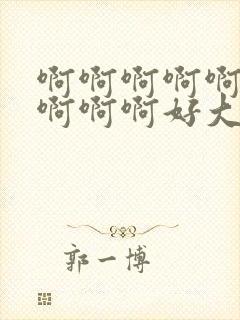 啊啊啊啊啊
啊啊啊好大
郭一博